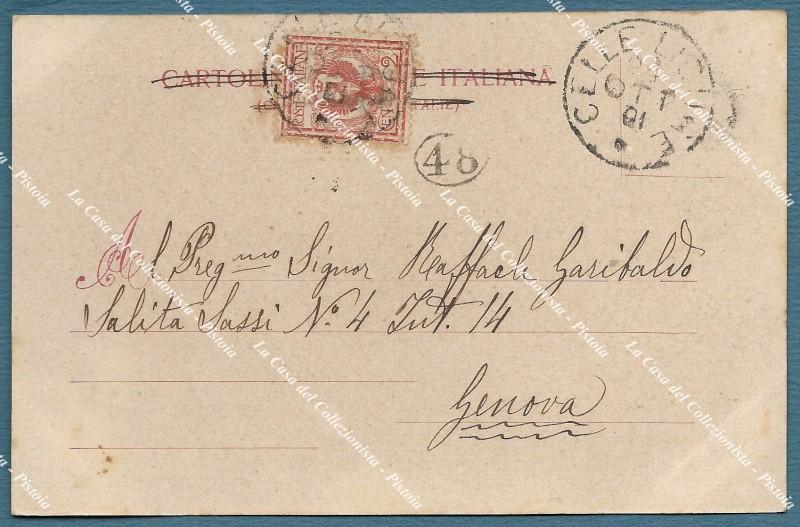 CARTOLI E ITALIANA
POSTE ITALIANE
2
CELLE LIGURE
OTT
01
48
Al Preg.mo Signor Raffaele Garibaldo
Salita Sassi No. 4 Int. 14
Genova
La Casa del Collezionista - Pistoia